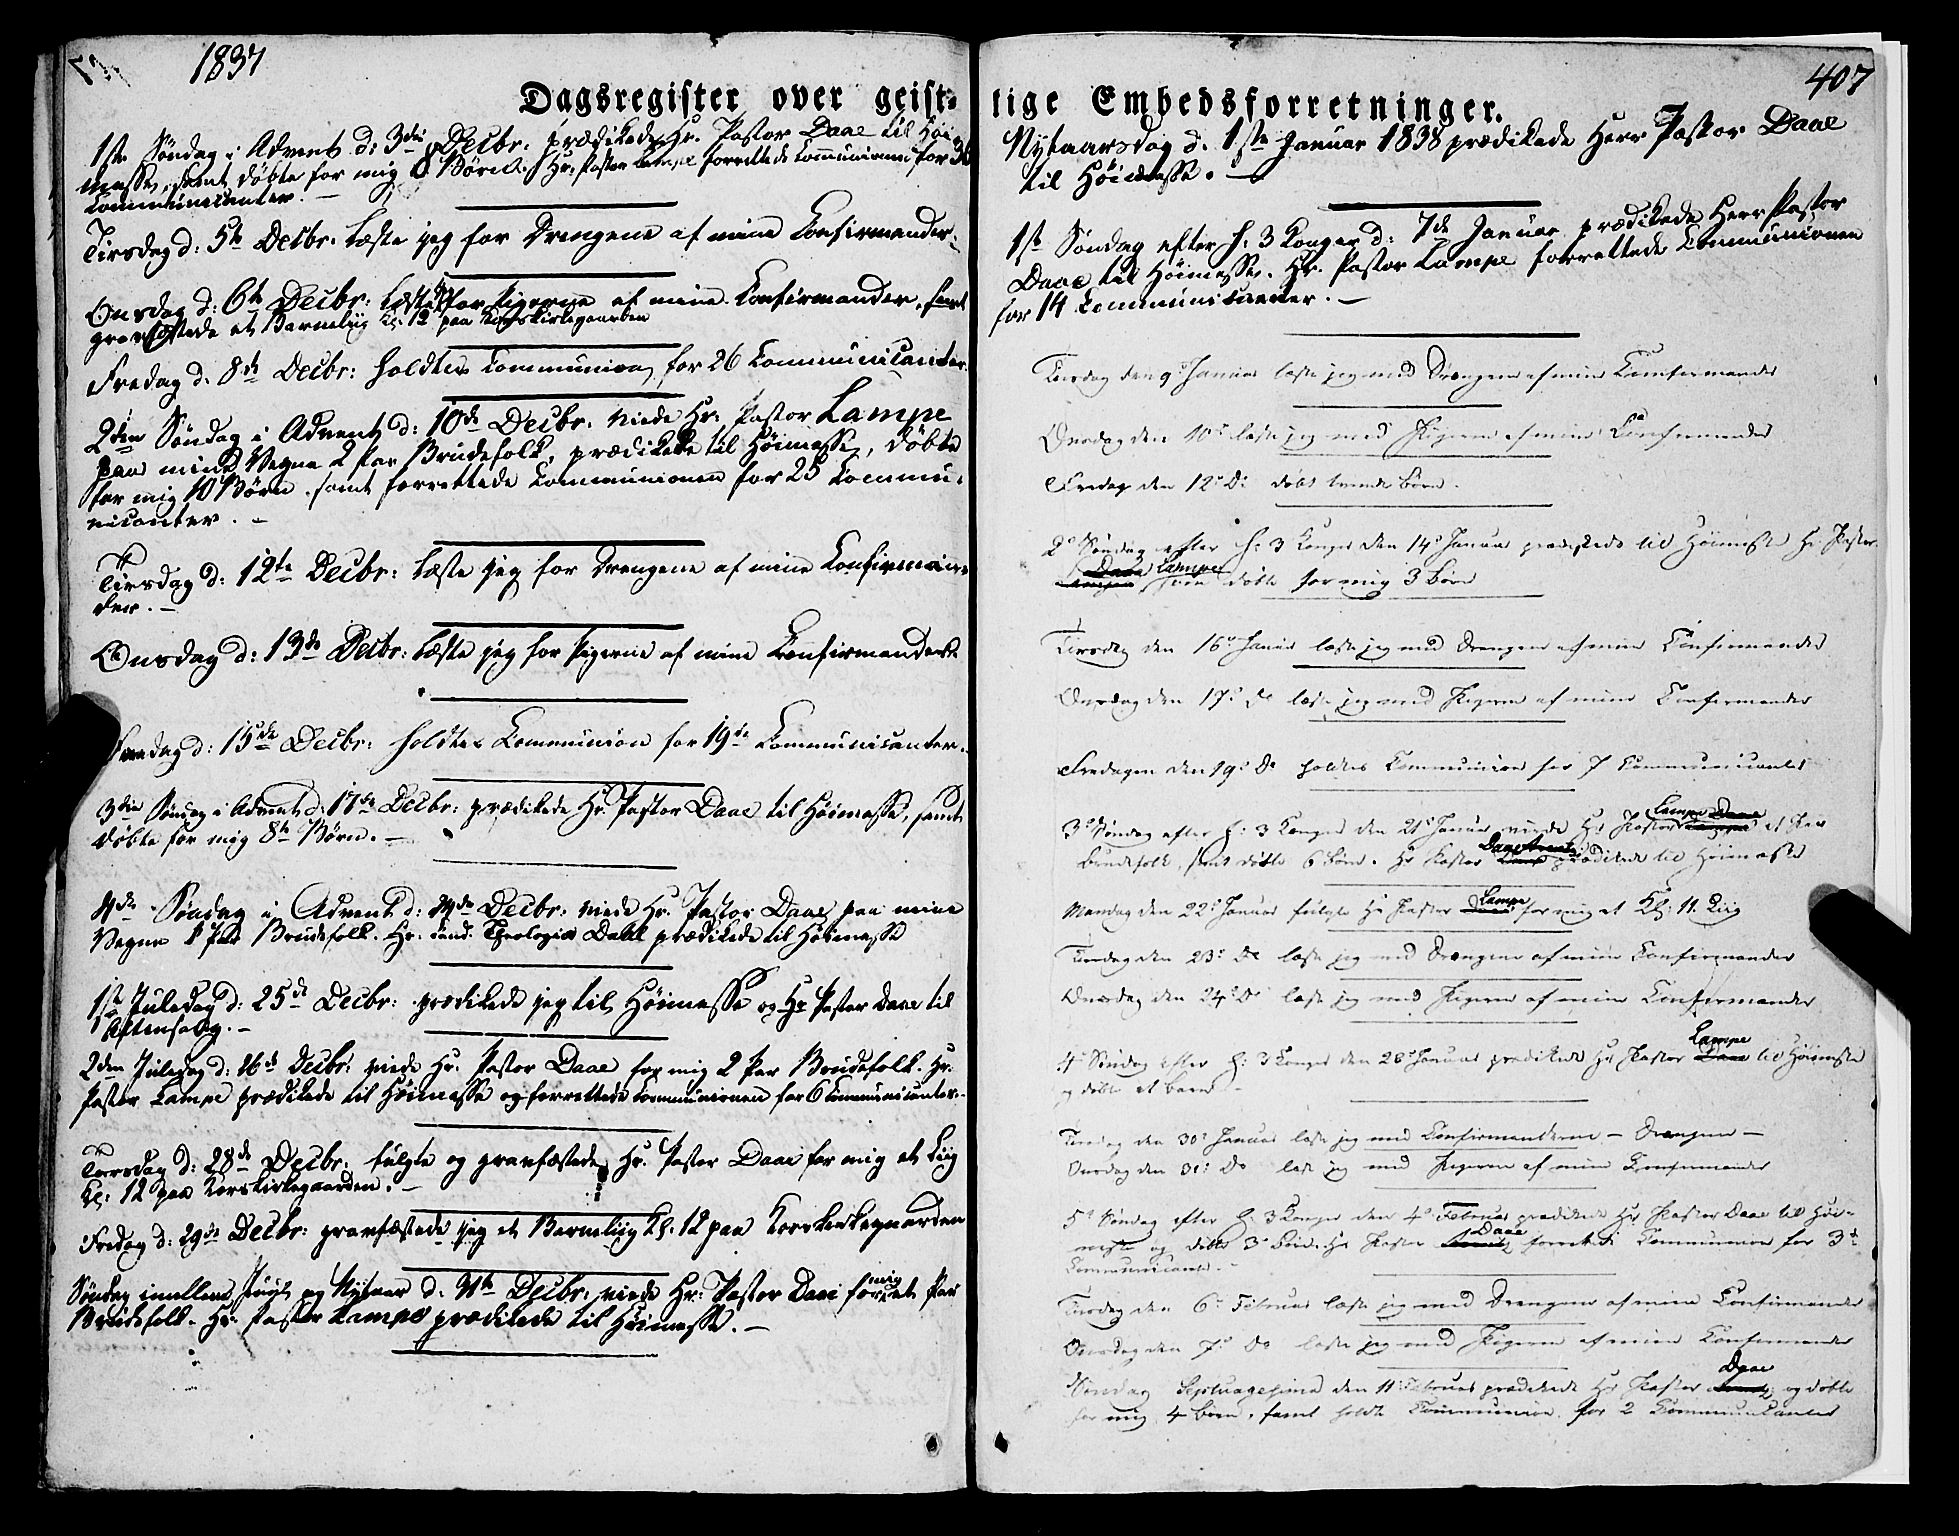 1837
Dagsregister over geist-
1ste Søndag i Advent d: 3die Decbr: prædikede Hr. Pastor Daae til Høi
messe, samt døbte for mig 8 Børn. Hr. Pastor Lampe forrettede Communionen for 36
Communicanter. –
Tirsdag d: 5te Decbr: læste jeg for Drengene af mine Confirmander.
Onsdag d: 6te Decbr: læste jeg for Pigerne af mine Confirmander, samt
gravfæstede et Barneliig Kl: 12 paa Korskirkegaarden
Fredag d. 8de Decbr: holdtes Communion for 26 Communicanter.
2den Søndag i Advent d: 10de Decbr. viede Hr: Pastor Lampe
paa mine Vegne 2 Par Brudefolk, prædikede til Høimesse, døbte
for mig 10 Børn samt forrettede Communionen for 25 Commu-
nicanter. –
Tirsdag d: 12te Decbr: læste jeg for Drengene af mine Confirman-
der. –
Onsdag d: 13de Decbr: læste jeg for Pigerne af mine Confirmander
Fredag d: 15de Decbr: holdtes Communion for 19 Communicanter.
3die Søndag i Advent d: 17de Decbr: prædikede Hr. Pastor Daae til Høimesse, samt
døbte for mig 8te Børn. –
4de Søndag i Advent d: 24de Decbr: viede Hr. Pastor Daae paa mine
Vegne 1 Par Brudefolk. Hr. Cand. Theologiæ Dahl prædikede til Høimesse
1ste Juledag d: 25de Decbr: prædikede jeg til Høimesse og Hr Pastor Daae til
Aftensang. –
2den Juledag d: 26de Decbr: viede Hr. Pastor Daae for mig 2 Par Brudefolk. Hr:
Pastor Lampe prædikede til Høimesse og forrettede Communionen for 6 Communicanter. –
Torsdag d: 28de Decbr: fulgte og gravfæstede Hr. Pastor Daae for mig et Liig
Kl: 12 paa Korskirkegaarden. –
Fredag d: 29de Decbr: gravfæstede jeg et Barneliig Kl: 12 paa Korskirkegaarden
Søndag imellem Juul og Nytaar d. 31te Decbr: viede Hr: Pastor Daae for mig et Par
Brudefolk. Hr: Pastor Lampe prædikede til Høimesse. –
407
lige Embedsforretninger.
Nytaarsdag d. 1ste Januar 1838 prædikede Herr Pastor Daae
til Høimesse. –
1ste Søndag efter H: 3 Konger d: 7de Januar prædikede Herr Pastor
Daae til Høimesse. Hr. Pastor Lampe forrettede Communionen
for 14 Communicanter. –
Tirsdag den 9de Januar læste jeg med Drengene af mine Confirmander
Onsdag den 10de læste jeg med Pigerne af mine Confirmander
Fredag den 12te Do døbt tvende Børn.
2den Søndag efter H: 3 Konger den 14de Januar prædikede til Høimesse Hr Pastor
Daae Lampe som døbte for mig 3 Børn
Tirsdag den 16de Januar læste jeg med Drengene af mine Confirmander
Onsdag den 17de Do læste jeg med Pigerne af mine Confirmander
Fredagen den 19de Do holdtes Communion for 7 Communicanter
3die Søndag efter H: 3 Konger den 21de Januar viede Hr Pastor Lampe Daae et Par
Brudefolk, samt døbte 6 Børn. Hr Pastor Daae prædikede til Høimesse
Mandag den 22de Januar fulgte Hr Pastor Lampe for mig et Kl: 11 Liig
Tirsdag den 23de Do læste jeg med Drengene af mine Confirmander
Onsdag den 24de Do læste jeg med Pigerne af mine Confirmander
4de Søndag efter H: 3 Konger den 28de Januar prædikede Hr Pastor Lampe Daae til Høimesse
og døbte et barn –
Tirsdag den 30te Januar læste jeg med Confirmanderne – Drengene –
Onsdag den 31te Do læste jeg med Pigerne af mine Confirmander
5te Søndag efter H: 3 Konger den 4de Februar prædikede Hr Pastor Daae til Høi-
messe og døbte 3 Børn. Hr Pastor Daae forrettede Communion for 3de
Communicanter. –
Tirsdag den 6te Februar læste jeg med Drengene af mine Confirmander
Onsdag den 7de Do læste jeg med Pigerne af mine Confirmander
Søndag Septuagesima den 11 Februar prædikede Hr Pastor Daae og døbte
for mig 4 Børn, samt holdt Communion for 2 Communicanter